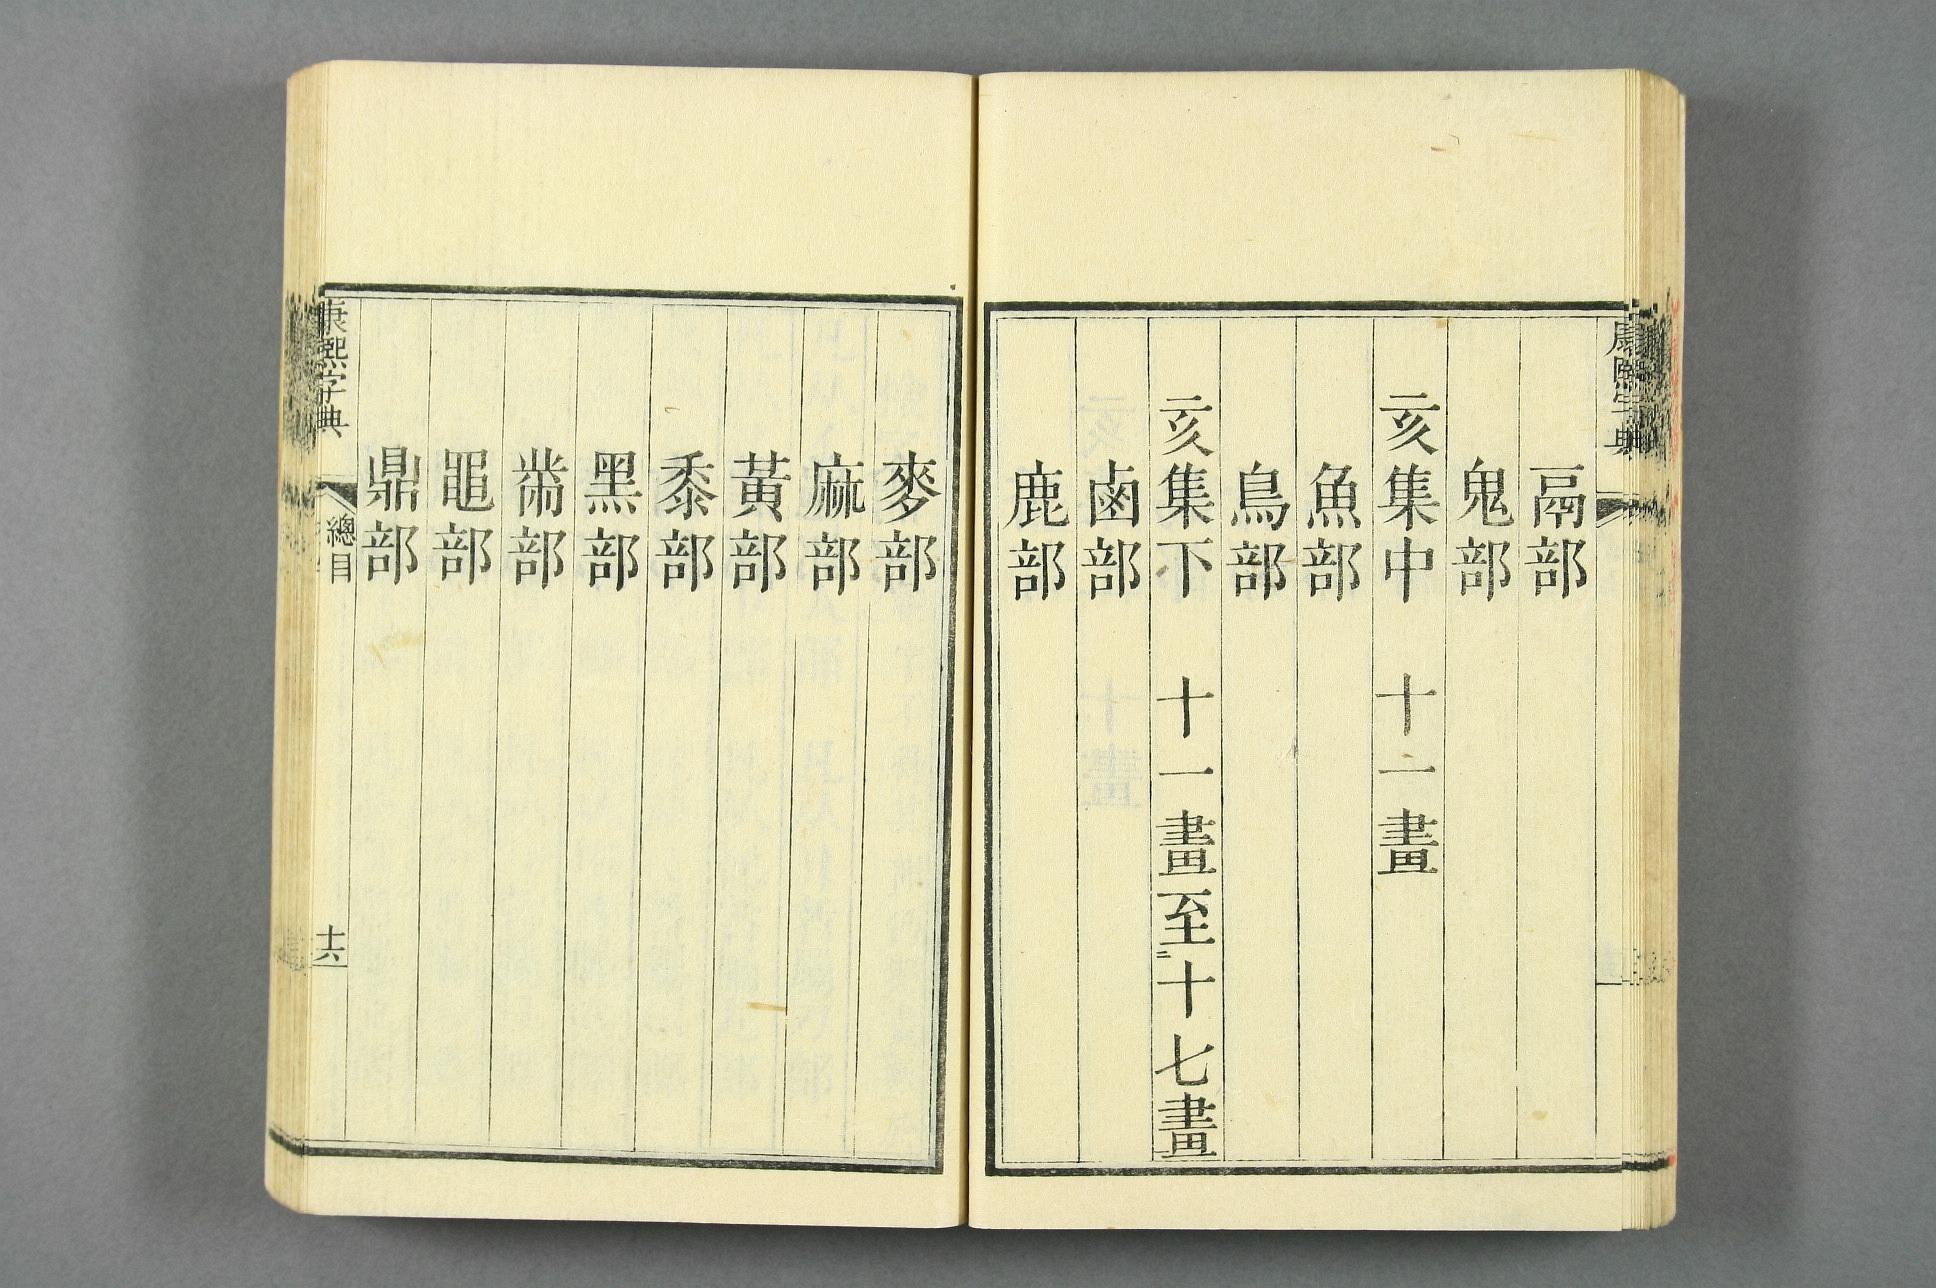 康熙字典
鬲部
鬼部
亥集中　十一畫
魚部
鳥部
亥集下　十一畫至十七畫
鹵部
鹿部
麥部
麻部
黃部
黍部
黑部
黹部
黽部
鼎部
康熙字典　總目　十六